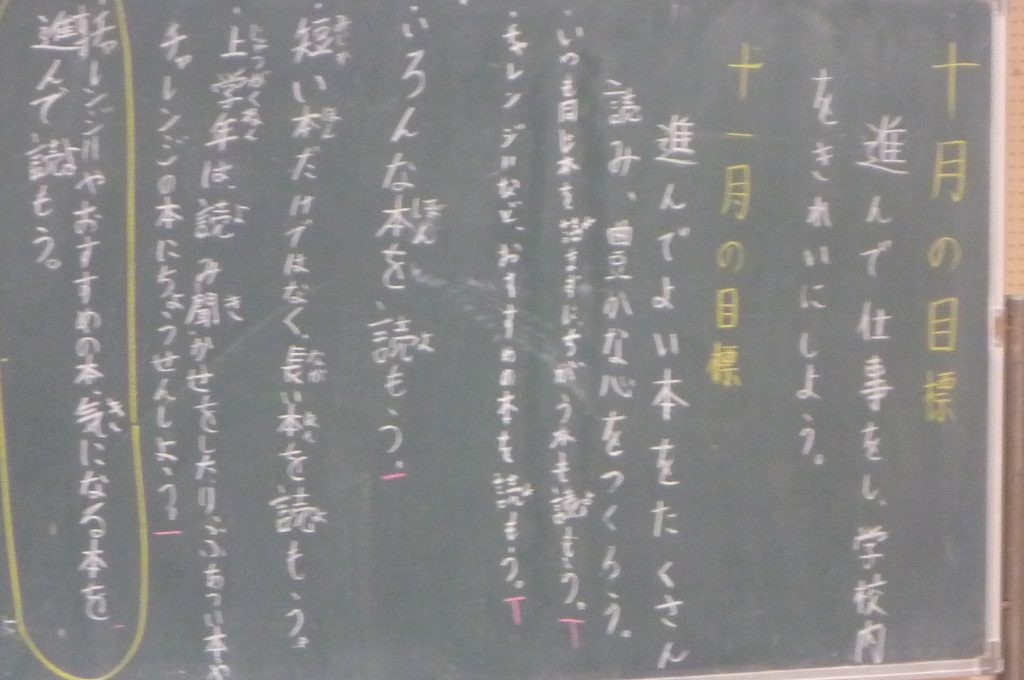 十月の目標
進んで仕事をし、学校内
をきれいにしよう。
十一月の目標
進んでよい本をたくさん
読み、豊かな心をつくろう。
・いつも同じ本を読まずに、ちがう本も読もう。T
・チャレンジ11など、おすすめの本も読もう。T
・いろんな本を読もう。一
・短い本だけではなく、長い本を読もう。
・上学年は、読み聞かせをしたりぶあつい本や
チャレンジの本にちょうせんしよう。一
・チャレンジ11やおすすめの本、気になる本を
進んで読もう。